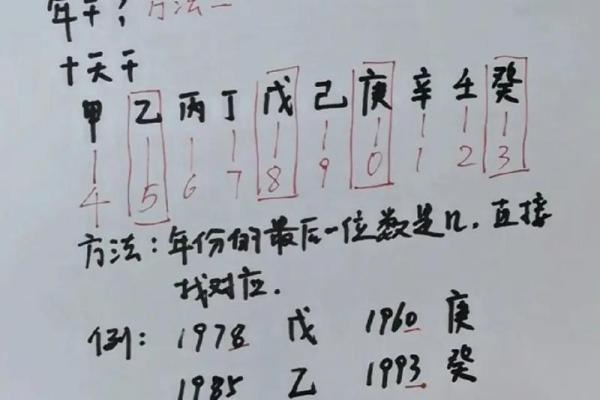 年干：方法一
十天干
甲 乙 丙 丁 戊 己 庚 辛 壬 癸
4 5 6 7 8 9 0 1 2 3
方法：年份的最后一位数是几，直接
找对应.
例：1978 戊 1960 庚
1985 乙 1993 癸